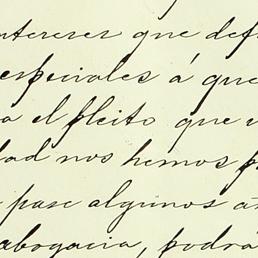 intereses que def
especiales á que
o el pleito que
dad nos hemos p
pase algunos añ
abogacia, podrá